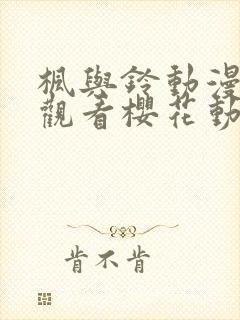 楓與鈴動漫
觀看櫻花動
肯不肯